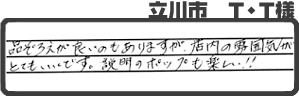 立川市　T・T様
品ぞろえが良いのもありますが、店内の雰囲気が
とてもいいです。説明のポップも楽しい!!